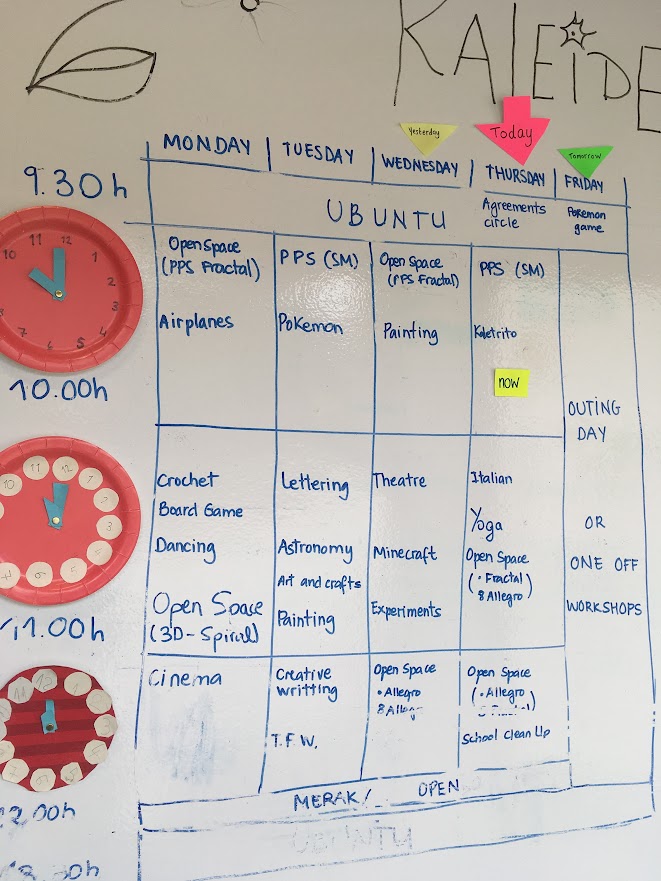 KALEIDE
Yesterday
Today
Tomorrow
MONDAY TUESDAY WEDNESDAY THURSDAY FRIDAY
9.30h
UBUNTU
Agreements
circle
Pokemon
game
Open Space
(PPS Fractal)
Airplanes
PPS (SM)
Pokemon
Open Space
(PPS Fractal)
Painting
PPS (SM)
Kaletrito
now
OUTING
DAY
OR
ONE OFF
WORKSHOPS
10 11 12 1 2 3 4 5 7
10.00h
Crochet
Board Game
Dancing
Open Space
(3D-Spiral)
Lettering
Astronomy
Art and crafts
Painting
Theatre
Minecraft
Experiments
Italian
Yoga
Open Space
(• Fractal)
8 Allegro
10 11 12 1 2 3 4 5 6
11.00h
Cinema
Creative
writting
T.F.W.
Open Space
• Allegro
Open Space
(• Allegro
School Clean Up
MERAK/ OPEN
UBUNTU